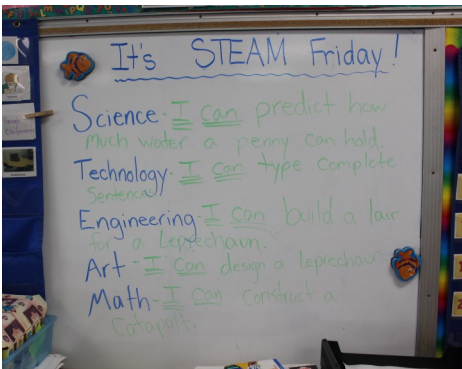 It's STEAM Friday!
Science - I can predict how
much water a penny can hold.
Technology - I can type complete
Sentences
Engineering - I can build a lair
for a Leprechaun.
Art - I can design a leprechaun
Math - I can construct a
Catapult.